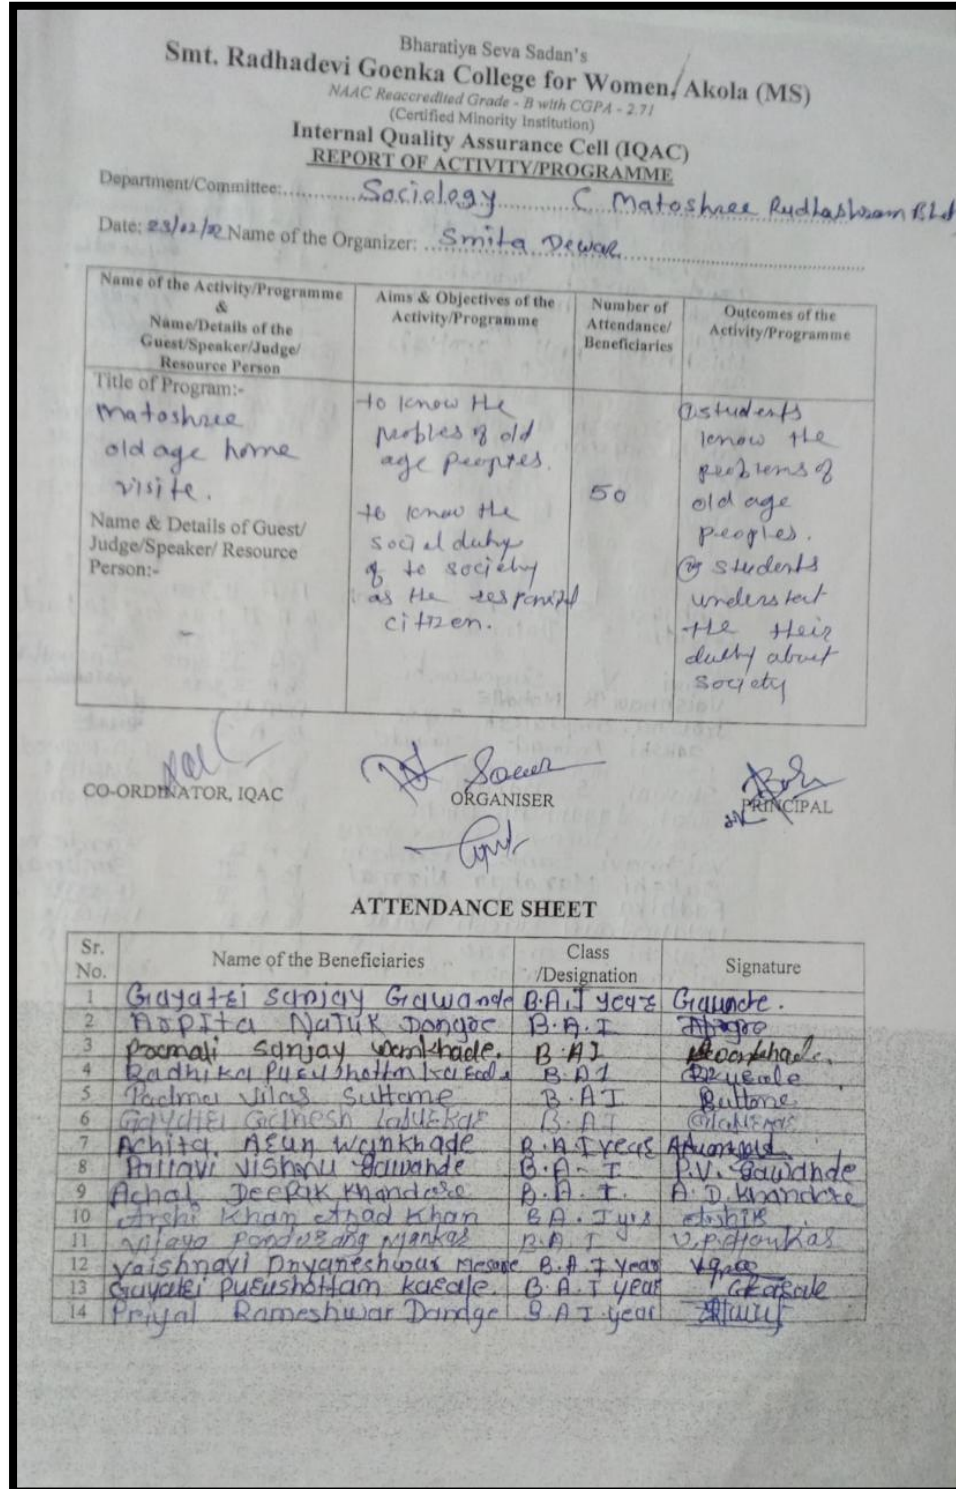 Bharatiya Seva Sadan's
Smt. Radhadevi Goenka College for Women, Akola (MS)
NAAC Reaccredited Grade - B with CGPA - 2.71
(Certified Minority Institution)
Internal Quality Assurance Cell (IQAC)
REPORT OF ACTIVITY/PROGRAMME
Department/Committee:.............Sociology............ C Matoshree
Date: Name of the Organizer: ..Smita Dewar
Name of the Activity/Programme & Name/Details of the Guest/Speaker/Judge/ Resource Person
Aims & Objectives of the Activity/Programme
Number of Attendance/ Beneficiaries
Outcomes of the Activity/Programme
Title of Program:-
Matoshree
old age home
visite.
Name & Details of Guest/
Judge/Speaker/ Resource
Person:-
-
to know the
peoples of old
age peoples.
to know the
social duty
of to society
as the
citizen.
50
students
know the
problems of
old age
peoples.
students
the their
about
society
CO-ORDINATOR, IQAC
ORGANISER
PRINCIPAL
ATTENDANCE SHEET
Sr. No. Name of the Beneficiaries Class /Designation Signature
1 Gayatri Sanjay Gawande B.A.I year Gawande.
2 Arpita B.A.I
3 Sanjay wankhade. B.AI
4 Radhika B.AI
5 Padma Vilas Suttame B.AI
6 Gayatri Ganesh B.AI
7 Achita. Arun Wankhade B.A.I year
8 Pallavi Vishnu Gawande B.A-I P.V. Gawande
9 Achal Deepak Khandare B.A.I. A.D. Khandare
10 Arshi Khan Khan B.A.I
11 B.A.I
12 Vaishnavi Dnyaneshwar B.A.I year
13 Gayatri Purushottam Karale. B.A.I year
14 Priyal Rameshwar Dandge B.A I year